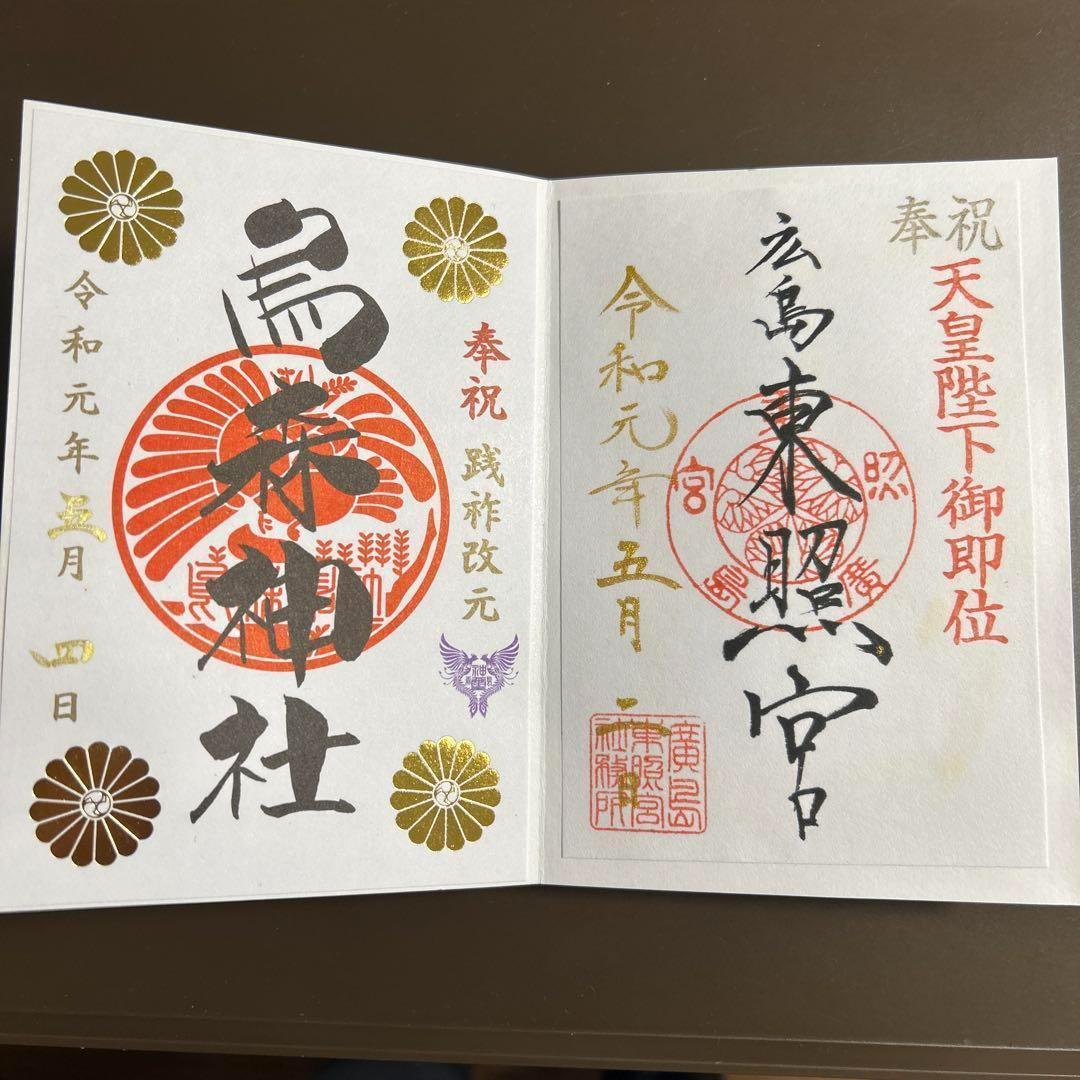 奉祝
天皇陛下御即位
広島東照宮
照
宮
廣
島
令和元年五月二日
廣島
東照宮
社務所
奉祝
践祚改元
烏森神社
令和元年五月四日